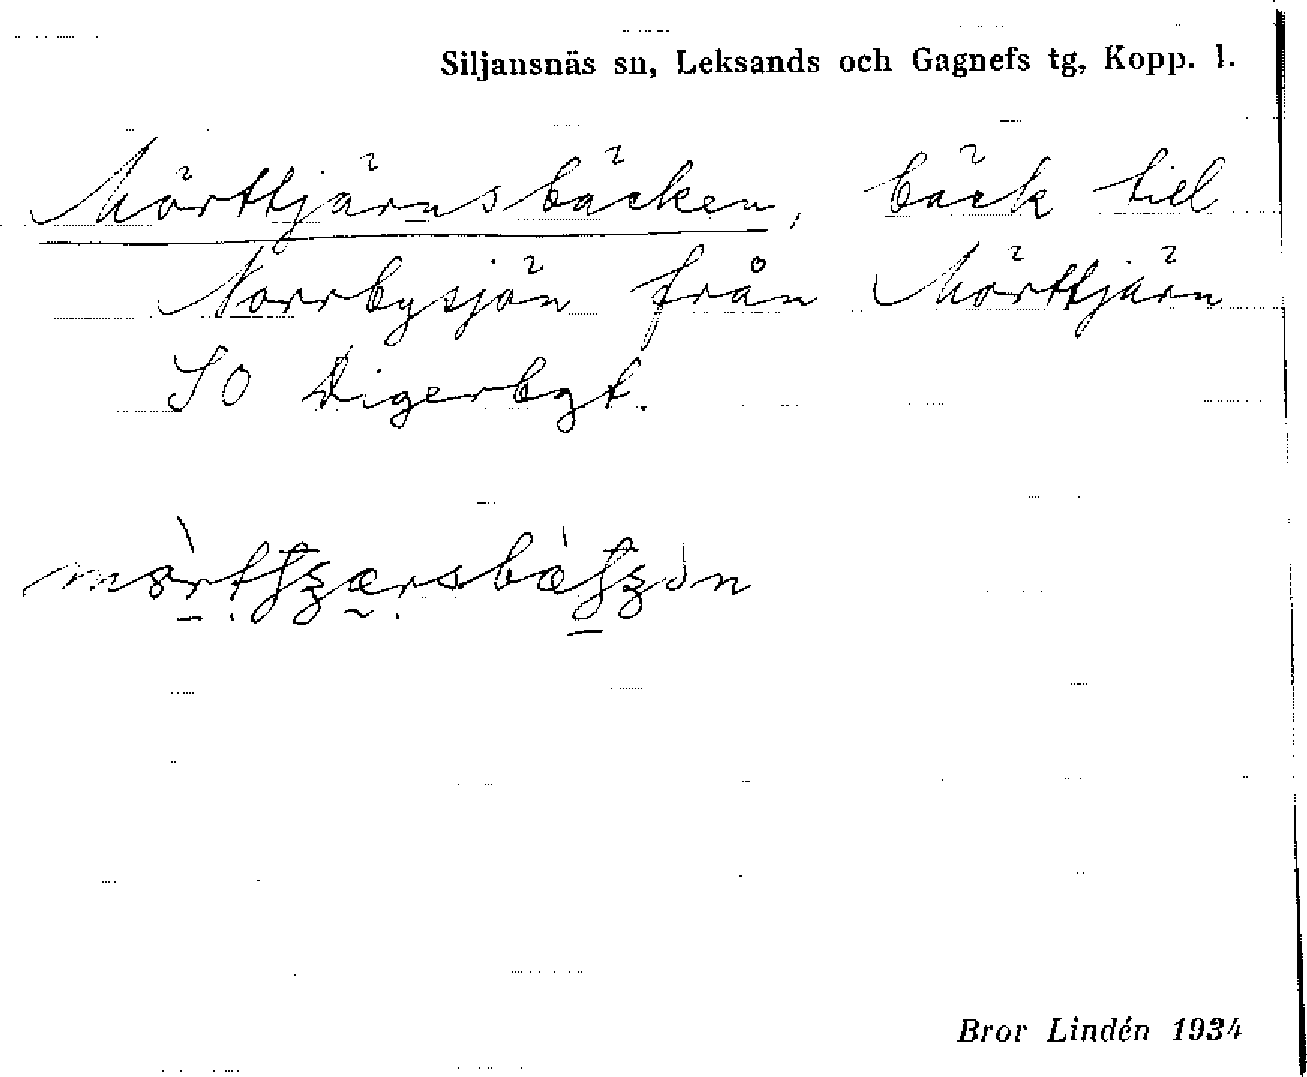 Siljansnäs sn, Leksands och Gagnefs tg, Kopp. l.
Mörttjärnsbäcken, bäck till
Norrbysjön från Mörttjärn
SO Digerbgt.
Bror Lindén 1934